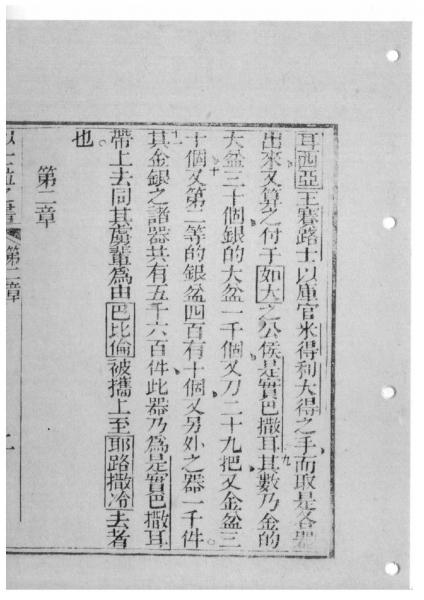 耳西亞王賽路士以庫官米得利大得之手而取是各器
出來又算之付于如大之公侯是實巴撒耳其數乃金的
九
大盆三十個銀的大盆一千個又刀二十九把又金盆三
十
十個又第二等的銀盆四百有十個又另外之器一千件。
十一
其金銀之諸器共有五千六百件此器乃爲是實巴撒耳
帶上去同其虜輩爲由巴比倫被攜上至耶路撒冷去者
也。
第二章
第二章